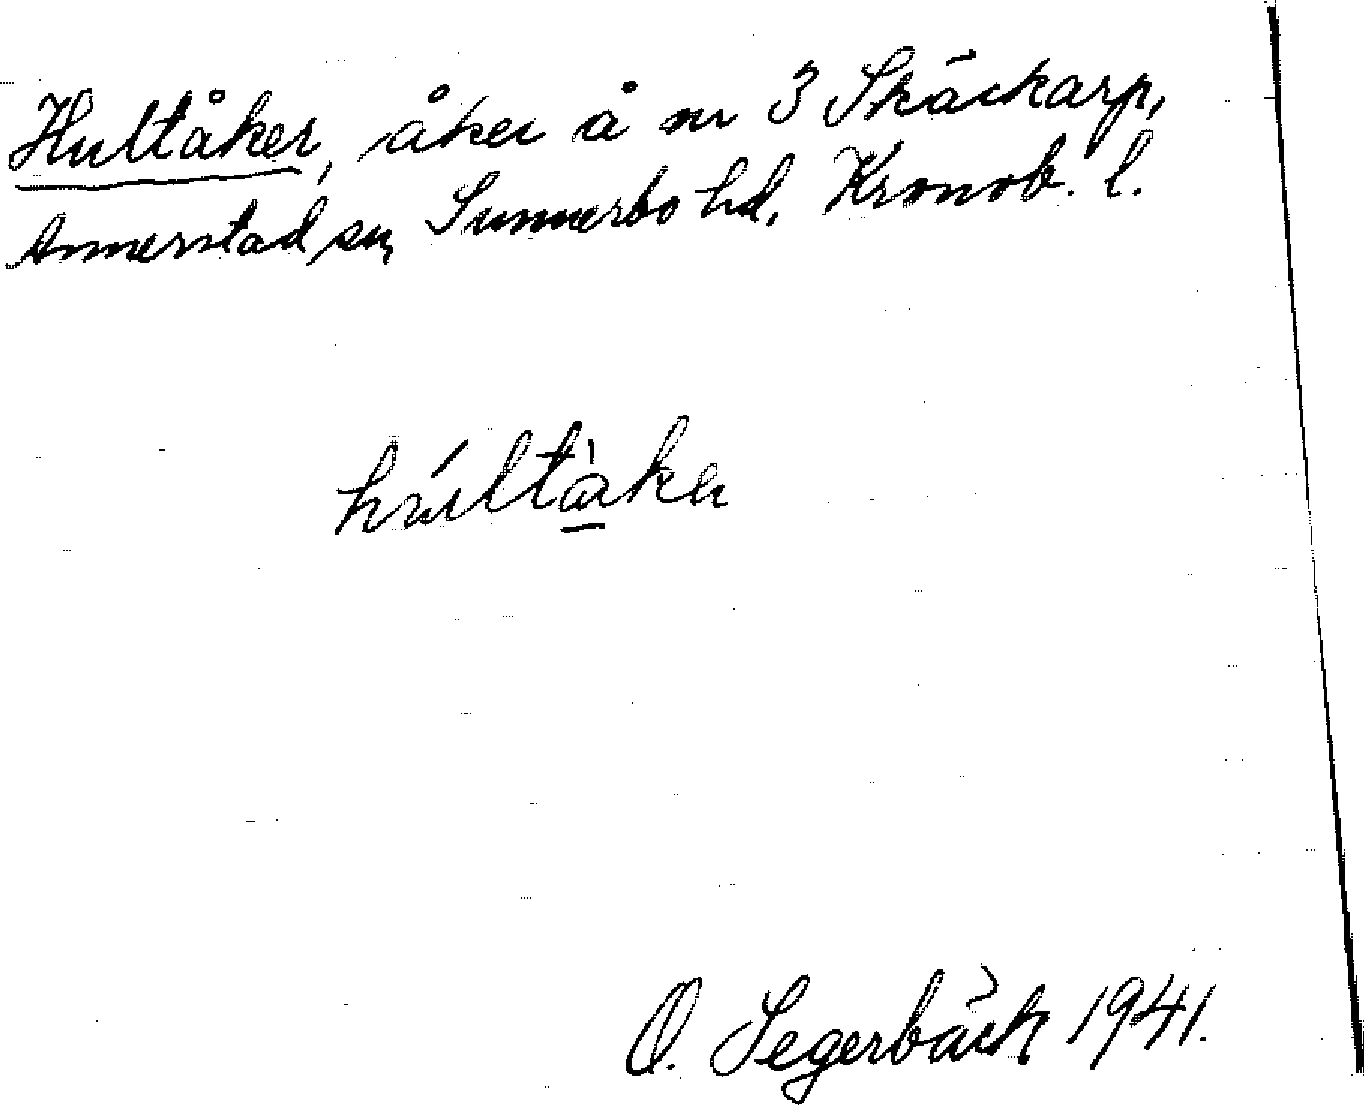 Hultåker, åker å nr 3 Skäckarp,
Annerstad sn, Sunnerbo hd, Kronob. l.
húltàker
O. Segerbäck 1941.